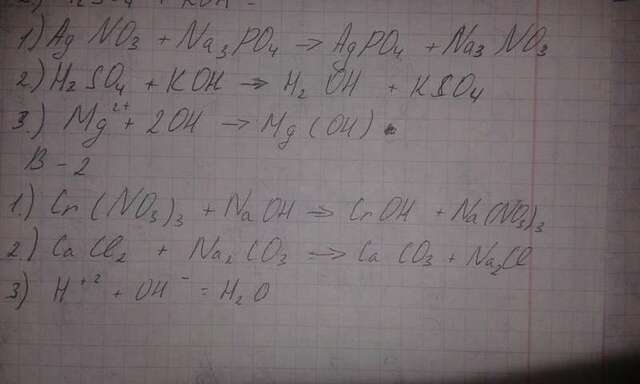 1) Ag NO3 + Na3PO4 → AgPO4 + Na3 NO3
2) H2 SO4 + KOH → H2 OH + KSO4
3.) Mg2+ + 2OH → Mg(OH)
B - 2
1.) Cr(NO3)3 + NaOH ⇒ CrOH + Na(NO3)3
2.) CaCl2 + Na2CO3 ⇒ CaCO3 + Na2Cl
3) H+2 + OH- = H2O